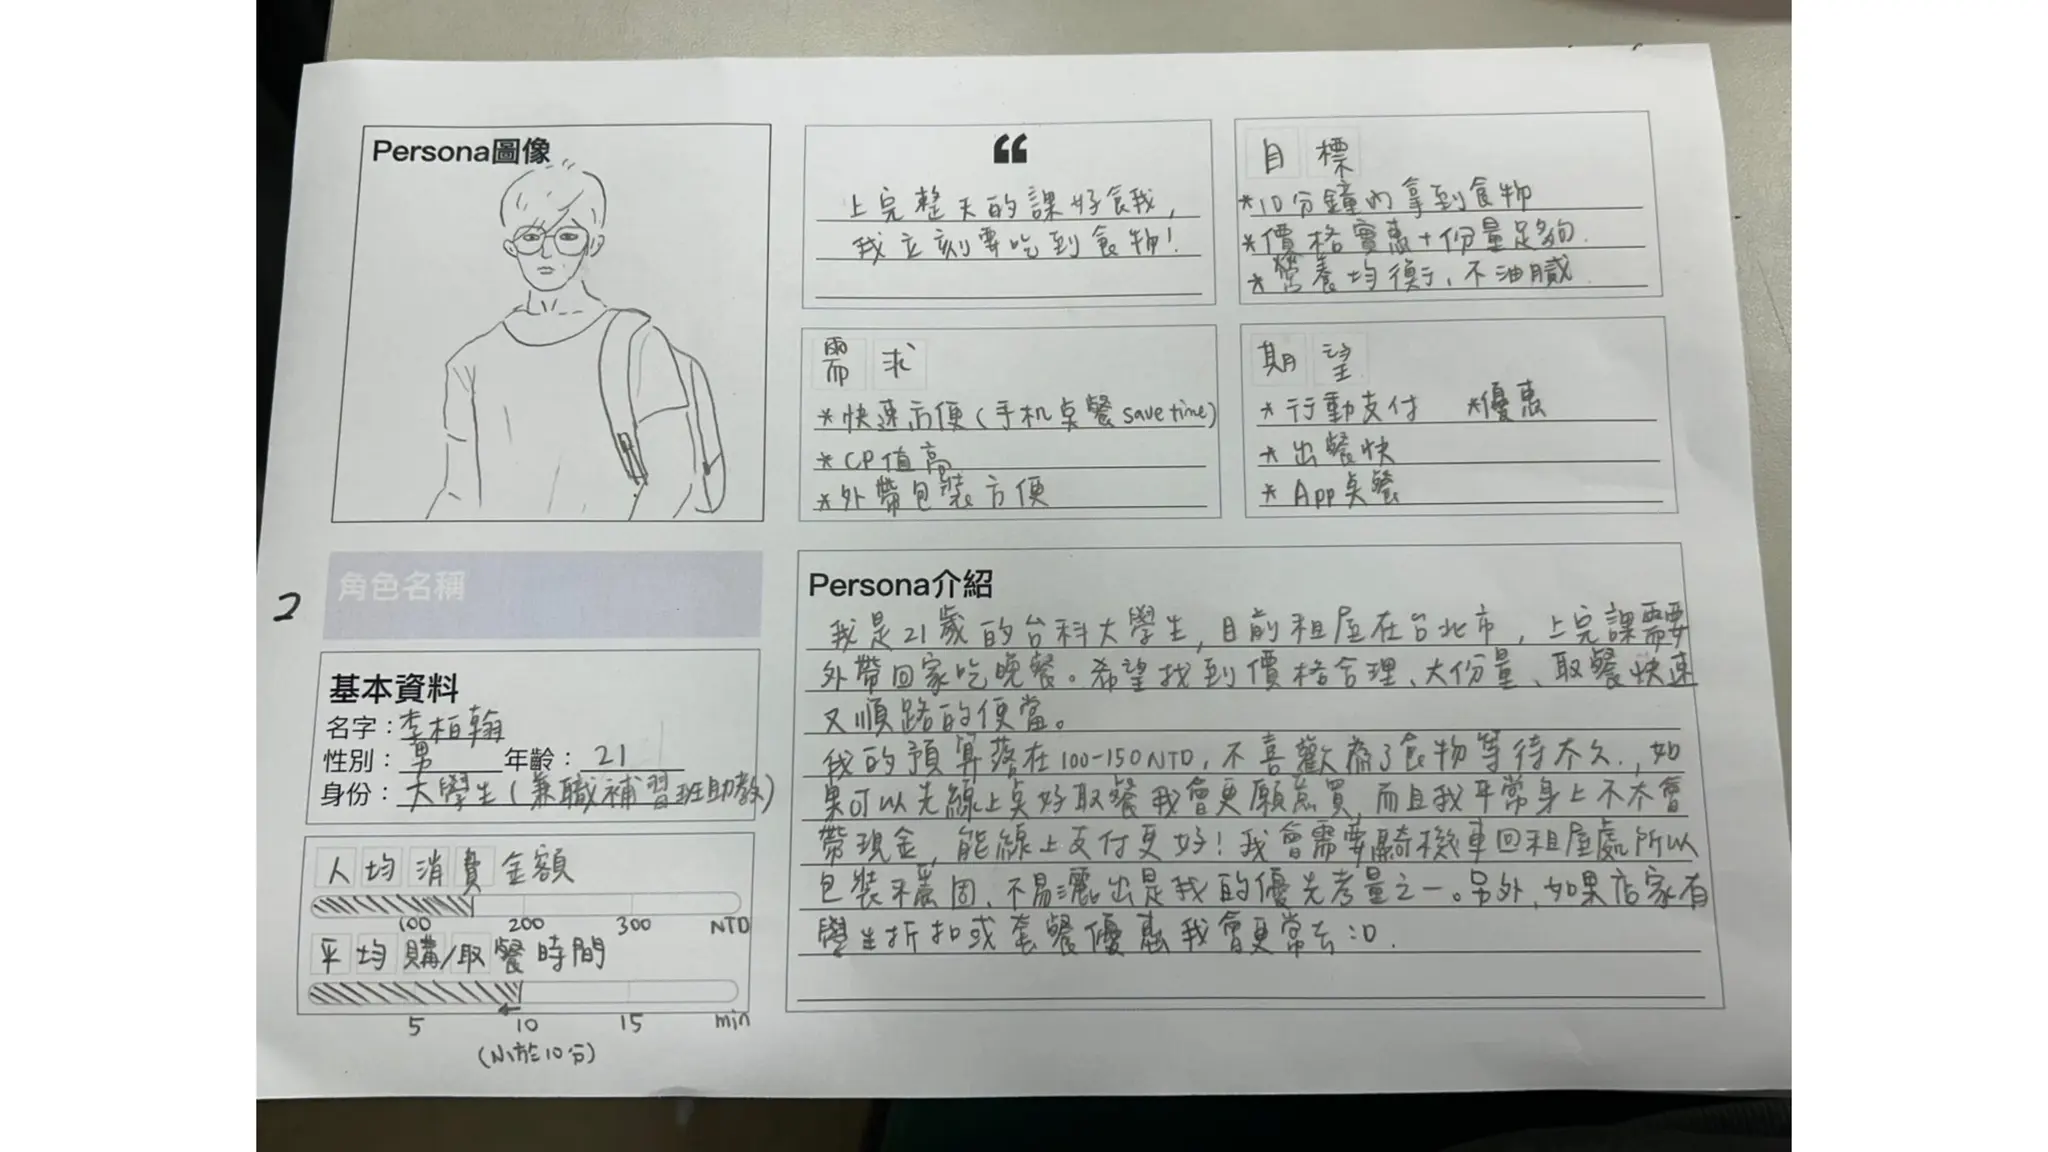 Persona圖像
“
上完整天的課好餓,
我立刻要吃到食物!
目標
*10分鐘內拿到食物
*價格實惠+份量足夠.
*營養均衡、不油膩.
需求
*快速方便(手机桌餐save time)
*CP值高
*外帶包裝方便
期望
*行動支付 *優惠
*出餐快
*App桌餐
2
角色名稱
基本資料
名字:李柏翰
性別:男 年齡:21
身份:大學生(兼職補習班助教)
人均消費金額
100 200 300 NTD
平均購/取餐時間
5 10 15 min
(小於10分)
Persona介紹
我是21歲的台科大學生,目前租屋在台北市,上完課需要
外帶回家吃晚餐。希望找到價格合理、大份量、取餐快速
又順路的便當。
我的預算落在100-150NTD,不喜歡為了食物等待太久.,如
果可以先線上桌好取餐我會更願意買,而且我平常身上不太會
帶現金,能線上支付更好!我會需要騎機車回租屋處所以
包裝穩固、不易灑出是我的優先考量之一。另外,如果店家有
學生折扣或套餐優惠我會更常去:D.